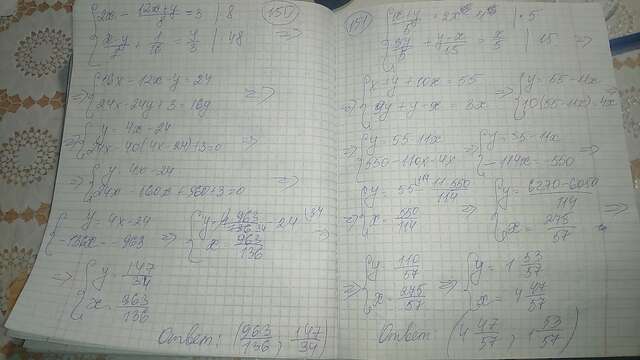 150
{2x - (12x+y)/8 = 3 | 8
{(x-y)/2 + 1/16 = y/3 | 48 =>
=> {16x - 12x - y = 24
{24x - 24y + 3 = 16y =>
=> {y = 4x - 24
{24x - 40(4x - 24) + 3 = 0 =>
=> {y = 4x - 24
{24x - 160x + 960 + 3 = 0 =>
{y = 4x - 24
{-136x = -963 =>
=> {y = 147/34
{x = 963/136
Ответ: (963/136, 147/34)
151
=> {x + y + 10x = 55
{9y + y - x = 3x =>
{y = 55 - 11x
{10(55 - 11x) = 4x
=> {y = 55 - 11x
{550 - 110x = 4x =>
{y = 55 - 11x
{-114x = -550 =>
{x = 550/114 =>
{y = (6270 - 6050)/114
{x = 275/57
=> {y = 110/57
{x = 275/57 =>
{y = 1 53/57
{x = 4 47/57
Ответ: (4 47/57, 1 53/57)